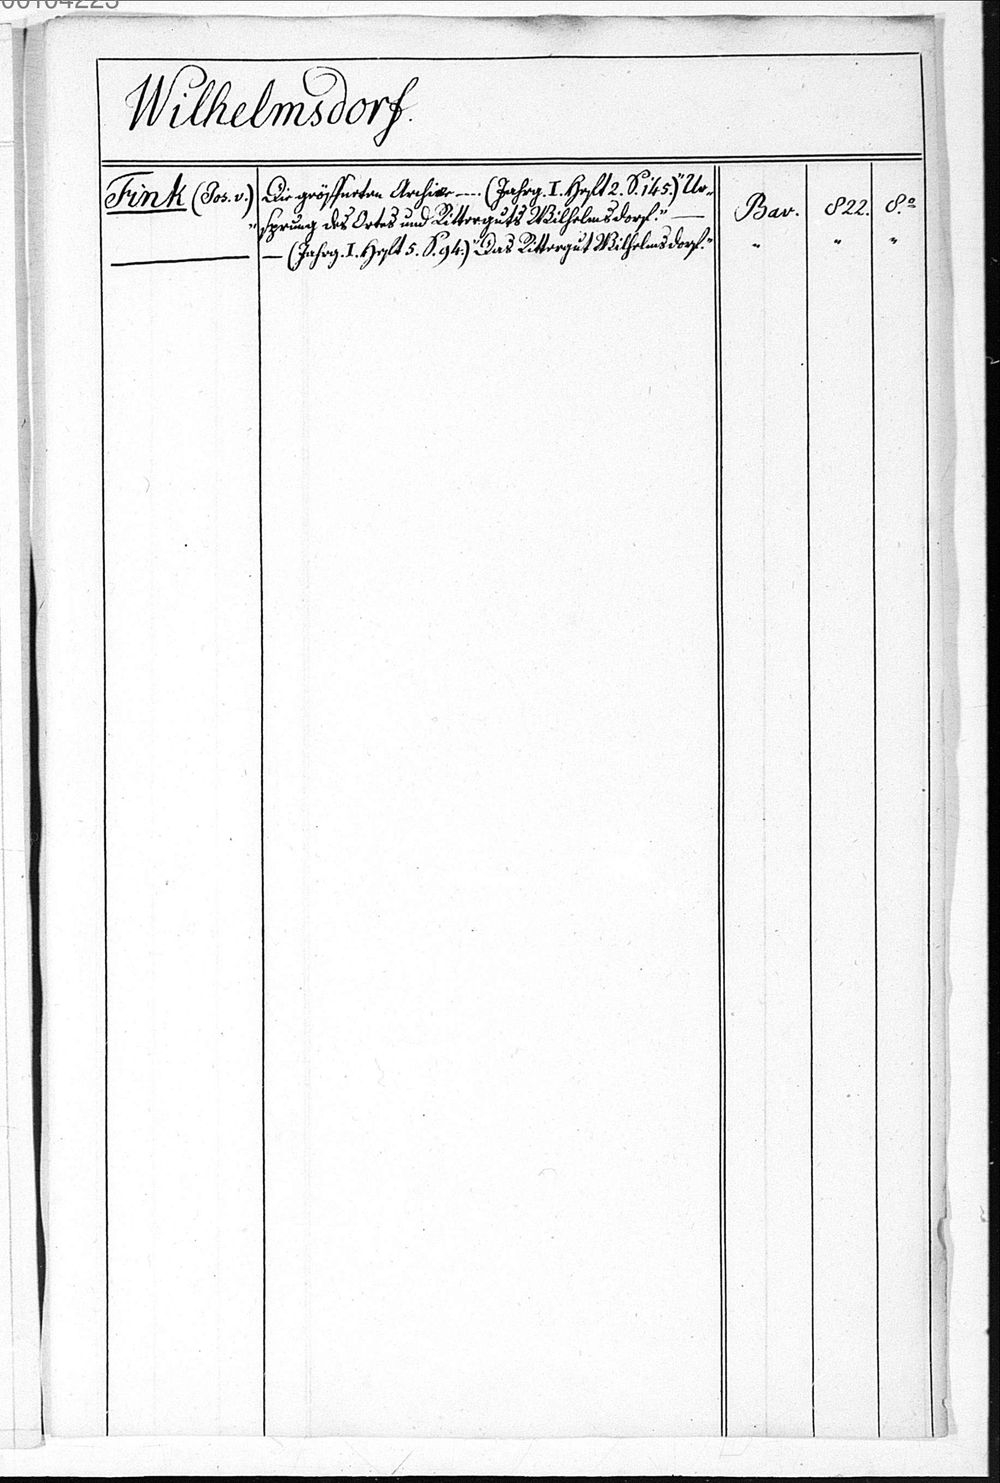 Wilhelmsdorf.
Fink (Jos. v.) Die geöffneten Archive —. (Jahrg. I. Heft 2. S. 145.) "Ur- Bav. 822. 8.º
sprung des Ortes und Ritterguts Wilhelmsdorf." —
— (Jahrg. I. Heft 5. S. 94.) "Das Rittergut Wilhelmsdorf." " " "